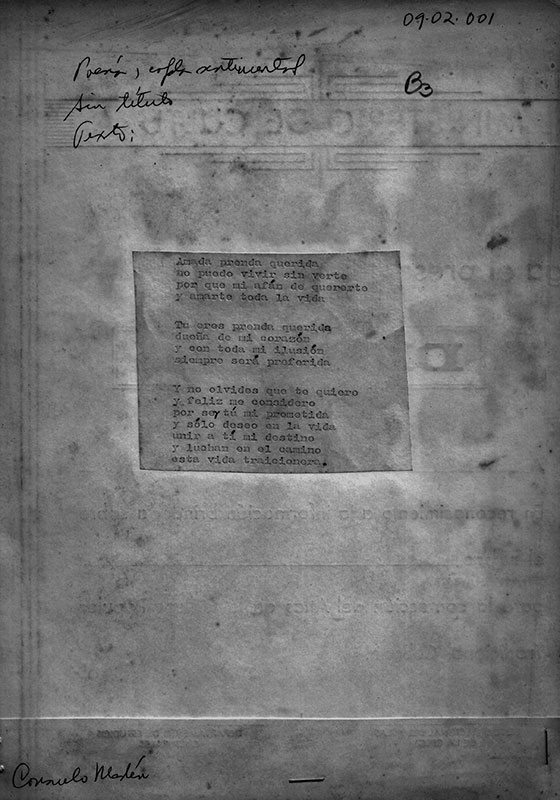 09-02-001
Poesía, copla sentimental
B3
Sin título
Texto:
Amada prenda querida
no puedo vivir sin verte
por que mi afán de quererte
y amarte toda la vida
Tu eres prenda querida
dueña de mi corazón
y con toda mi ilusión
siempre será preferida
Y no olvides que te quiero
y feliz me considero
por ser tú mi prometida
y sólo deseo en la vida
unir a tí mi destino
y luchan en el camino
esta vida traicionera.
Consuelo